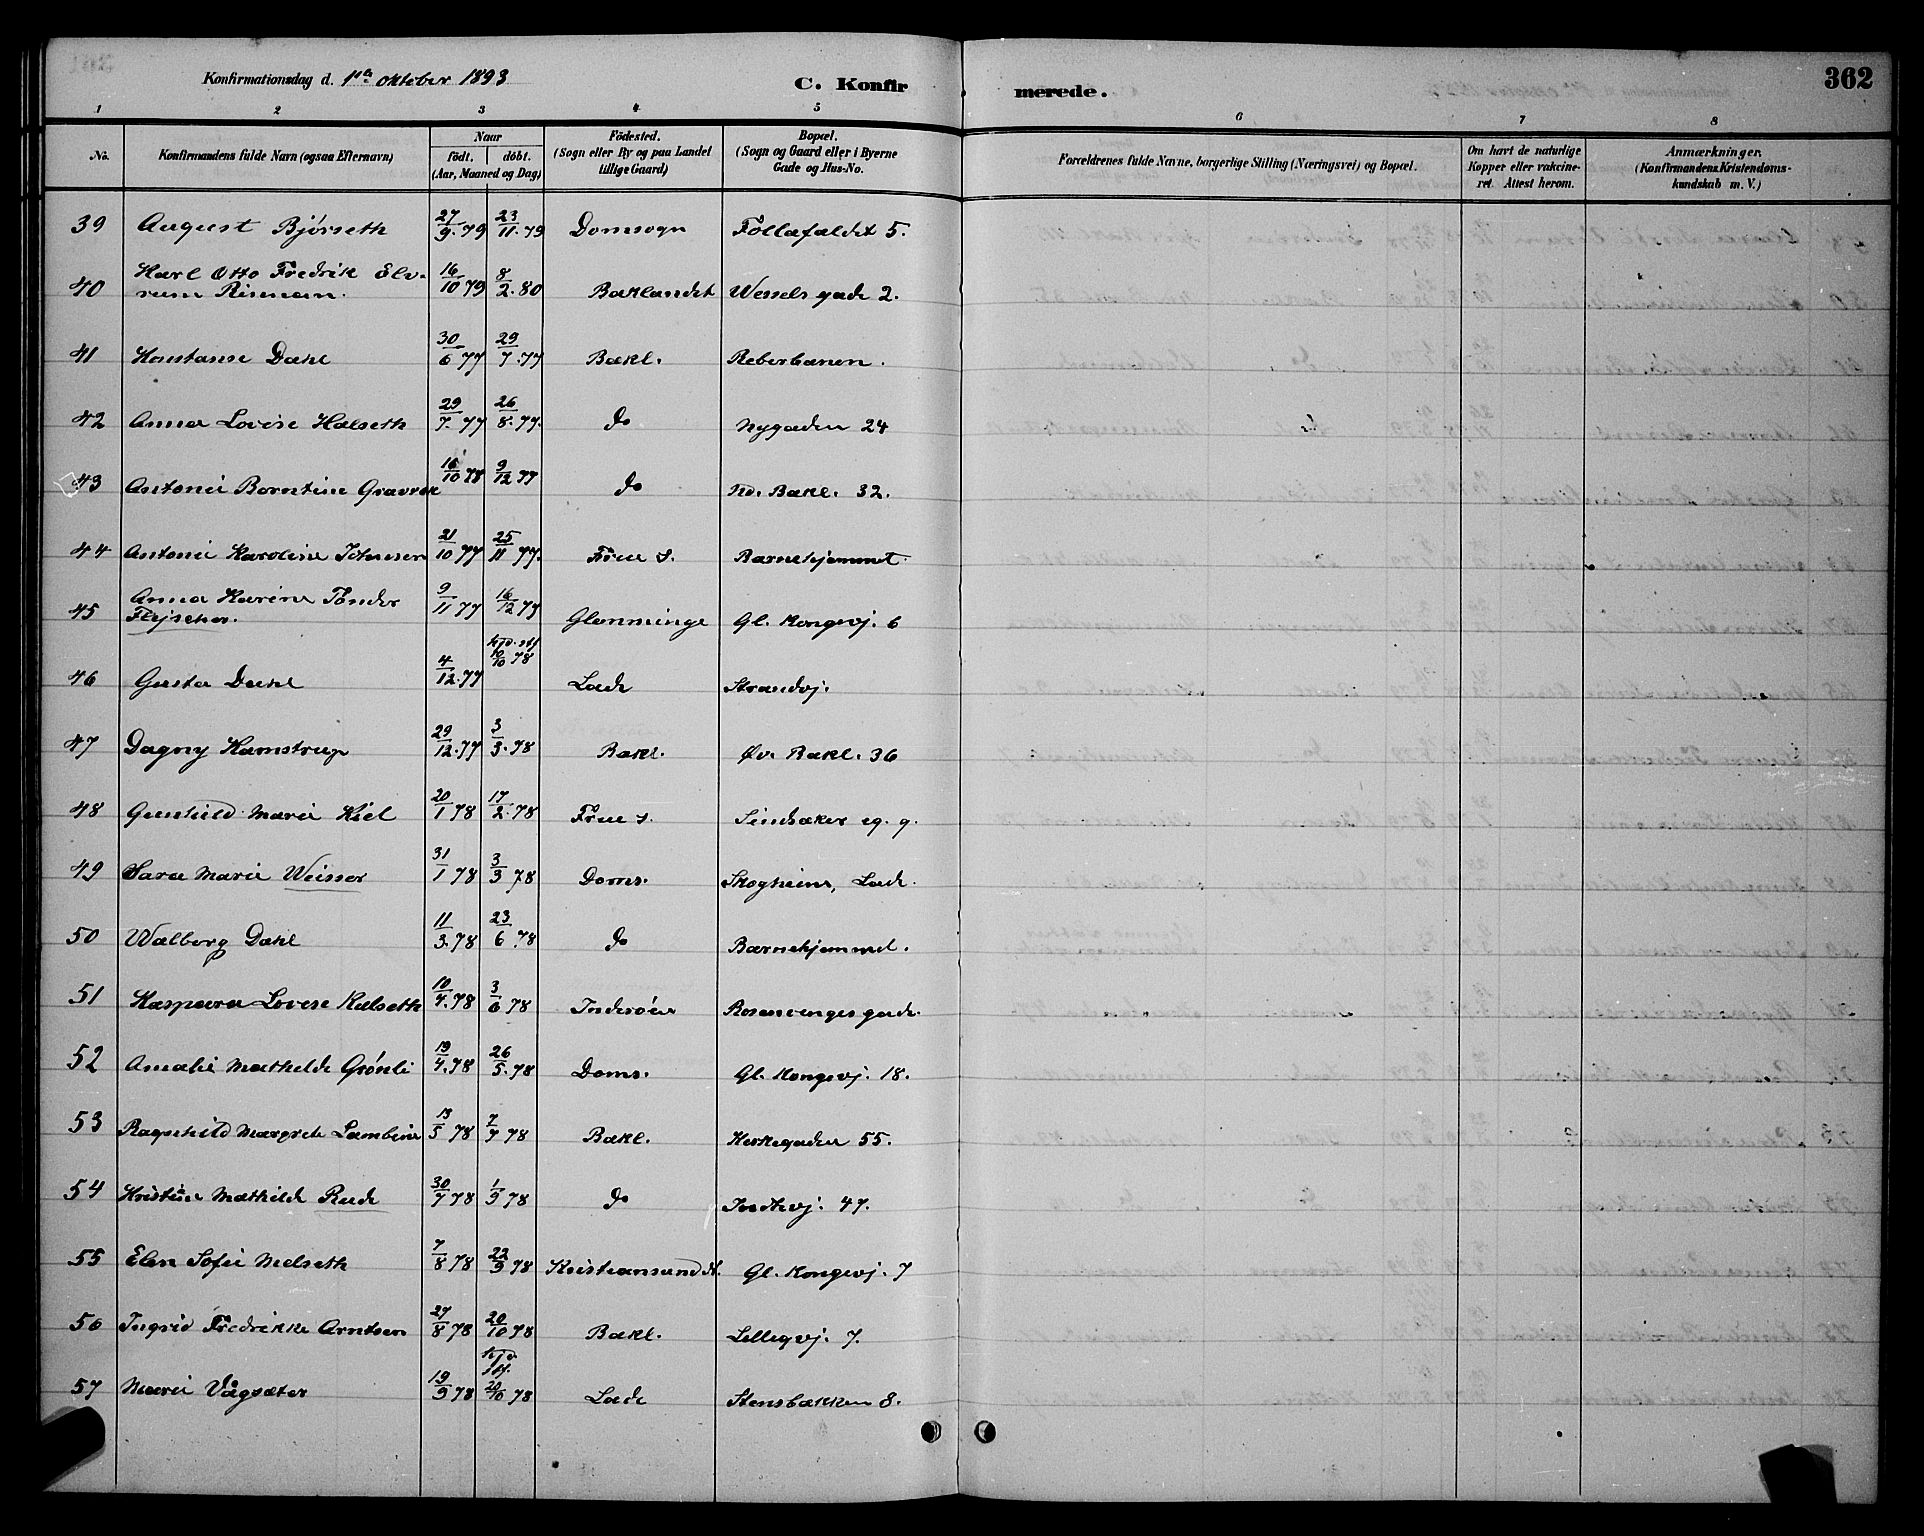 Konfirmationsdag d. 1ste oktober 1893
C. Konfirmerede.
362
1 2 3 4 5 6 7 8
No.
Konfirmandens fulde Navn (ogsaa Efternavn)
Naar
födt. döbt.
(Aar, Maaned og Dag)
Födested.
(Sogn eller By og paa Landet
tillige Gaard)
Bopæl.
(Sogn og Gaard eller i Byerne
Gade og Hus-No.
Forældrenes fulde Navne, borgerlige Stilling (Næringsvei) og Bopæl.
Om havt de naturlige
Kopper eller vakcine-
ret. Attest herom.
Anmærkninger.
(Konfirmandens Kristendoms-
kundskab m. V.)
39 August Bjørseth 27/9.79 23/11.79 Domsogn Follafaldet 5.
40 Karl Otto Fredrik Elv-
rum Risman. 16/10 79 8/2.80 Baklandet Wessels gade 2.
41 Konstanse Dahl 30/6 77 29/7.77 Bakl. Reberbanen.
42 Anna Lovise Halseth 29/7.77 26/8.77. do Nygaden 24
43 Antonie Borntine Gravrok 16/10 78 9/12 77 do Nd. Bakl. 32.
44 Antonie Karoline Johnsen 21/10 77 25/11 77. Frue s. Barnehjemmet.
45 Anna Karine Tønder
Flejscher. 9/11 77 16/12 77 Glemminge Gl. Kongevj. 6
46 Gusta Dahl 4/12.77 hjd. stf 10/10 78 Lade Strandvj.
47 Dagny Kamstrup 29/12.77 3/3.78 Bakl. Øv. Bakl. 36
48 Gunhild Marie Kiel 20/1 78 17/2.78 Frue s. Sindsaker eg. g.
49 Sara Marie Weisser 31/1 78 3/3 78 Doms. Skogheim, Lade.
50 Walborg Dahl 11/3.78 23/6.78 do Barnehjemmet.
51 Kaspara Lovise Kalseth 10/4.78 3/6 78 Inderöen Rosenvinges gade.
52 Amalie Mathilde Grönli 19/4.78 26/5.78 Doms. Gl. Kongevj. 18.
53 Ragnhild Margrete Lambine 13/5 78 7/7 78 Bakl. Kirkegaden 55.
54 Kristine Mathilde Rude 30/7 78 1/9 78 do Indhvj. 47.
55 Elen Sofie Melseth 7/8 78 22/9 78 Kristiansund N. Gl. Kongevj. 7
56 Ingrid Fredrikke Arntsen 27/8 78 20/10 78 Bakl. Lillegvj. 7.
57 Marie Vågsæter 19/9 78 hjd. stf. 20/10 78 Lade Stensbakken 8.